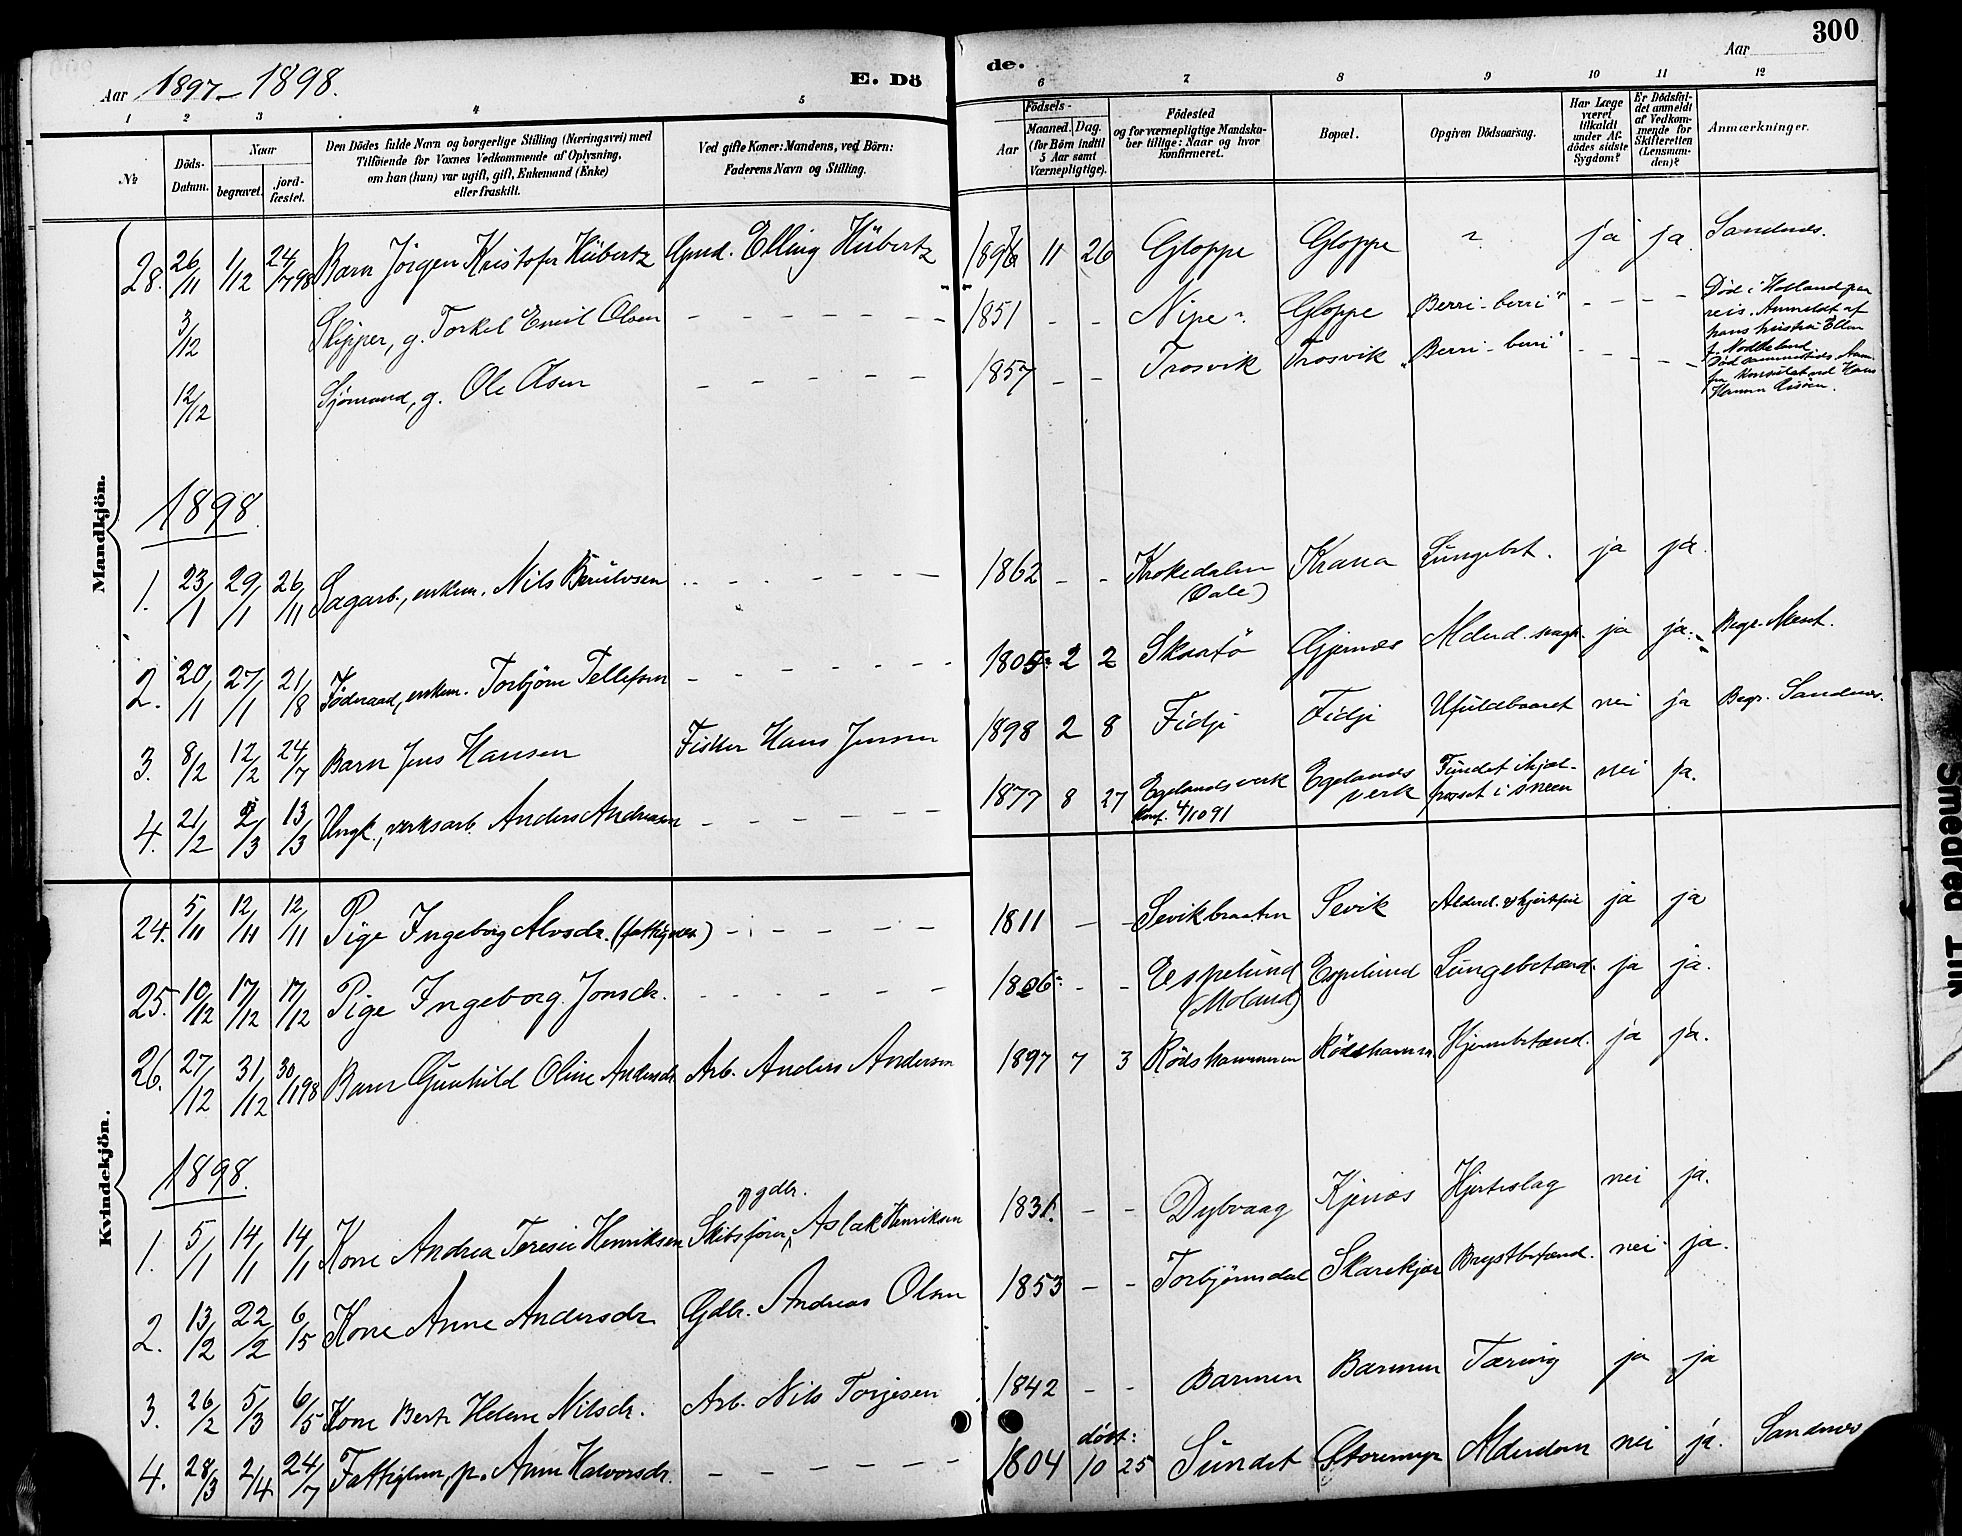 300
Aar 1897-1898.
E. Dö
de.
Aar
1 2 3 4 5 6 7 8 9 10 11 12
№
Döds-Datum.
Naar
begravet.
jord-fæstet.
Den Dödes fulde Navn og borgerlige Stilling (Næringsvei) med
Tilföiende for Voxnes Vedkommende af Oplysning,
om han (hun) var ugift, gift, Enkemand (Enke)
eller fraskilt.
Ved gifte Koner: Mandens, ved Börn:
Faderens Navn og Stilling.
Födsels-
Aar
Maaned. Dag.
(for Börn indtil
5 Aar samt
Værnepligtige).
Födested
og for værnepligtige Mandska-
ber tillige: Naar og hvor
konfirmeret.
Bopæl.
Opgiven Dödsaarsag.
Har Læge
været
tilkaldt
under Af-
dödes sidste
Sygdom?
Er Dödsfal-
det anmeldt
af Vedkom-
mende for
Skifteretten
(Lensman-
den)?
Anmærkninger.
Mandkjön.
28. 26/11 1/12 24/7 98 Barn Jörgen Kristofer Hübertz Gmd. Elling Hübertz 1897 11 26 Gloppe Gloppe ? ja ja Sandnes.
3/12 Skipper, g. Torkel Emil Olsen - - - - - - 1851 - - Nipe ? Gloppe "Berri-berri" - - - - Död i Holland paa reis. Anmeldt af hans hustru Ellen f.
12/12 Sjömand, g. Ole Olsen - - - - - 1857 - - Trosvik Trosvik "Berri-berri" - - - - Död
1898.
1. 23/1 29/1 26/11 Sagarb., enkem. Nils Beruldsen - - - - - - 1862 - - Krokedalen (Dale) Krana Lungebet. ja ja.
2. 20/1 27/1 21/8 Föderaad, enkem. Torbjörn Tellefsen - - - - - - 1805 2 2 Skaatö Gjernæs Alderd. svagh. ja ja. Begr.
3. 8/2 12/2 24/7 Barn Jens Hansen Fisker Hans Jensen 1898 2 8 Fidje Fidje Ufuldbaaret nei ja Begr. Sandnes.
4. 21/2 2/3 13/3 Ungk., verksarb. Anders Andreasen - - - - - 1877 8 27 Egelands verk Konf. 4/10 91 Egelands verk Fundet ihjel-frosset i sneen nei ja.
Kvindekjön.
24. 5/11 12/11 12/11 Pige Ingeborg Alvsdr. (fattigvæs.) - - - - - - 1811 - - Sevikbraaten Sevik Alderd. & hjertefeil ja ja
25. 10/12 17/12 17/12 Pige Ingeborg Jonsdr. - - - - - - 1806 - - Espelund (Moland) Espelund Lungebetænd. ja ja.
26. 27/12 31/12 30/1 98 Barn Gunhild Oline Andersdr. Arb. Anders Andersen 1897 7 3 Rödshammeren Rödshamren Hjernebetænd. ja ja.
1898.
1. 5/1 14/1 14/1 Kone Andrea Teresie Henriksen Skibsförer, og gdbr. Aslak Henriksen 1831. - - Dybvaag Kjenæs Hjerteslag nei ja.
2. 13/2 22/2 6/5 Kone Anne Andersdr. Gdbr. Andreas Olsen 1853 - - Torbjörnsdal Skarekjær Brystbetænd. nei ja.
3. 26/2 5/3 6/5 Kone Berte Helene Nilsdr. Arb. Nils Torjesen 1842 - - Barmen Barmen Tæring ja ja
4. 28/3 2/4 24/7 Fattiglem, p. Anne Halvorsdr. - - - - - - 1804 döbt: 10 25 Sundet Storemyr Alderdom nei ja. Sandnes
Smeared Ink